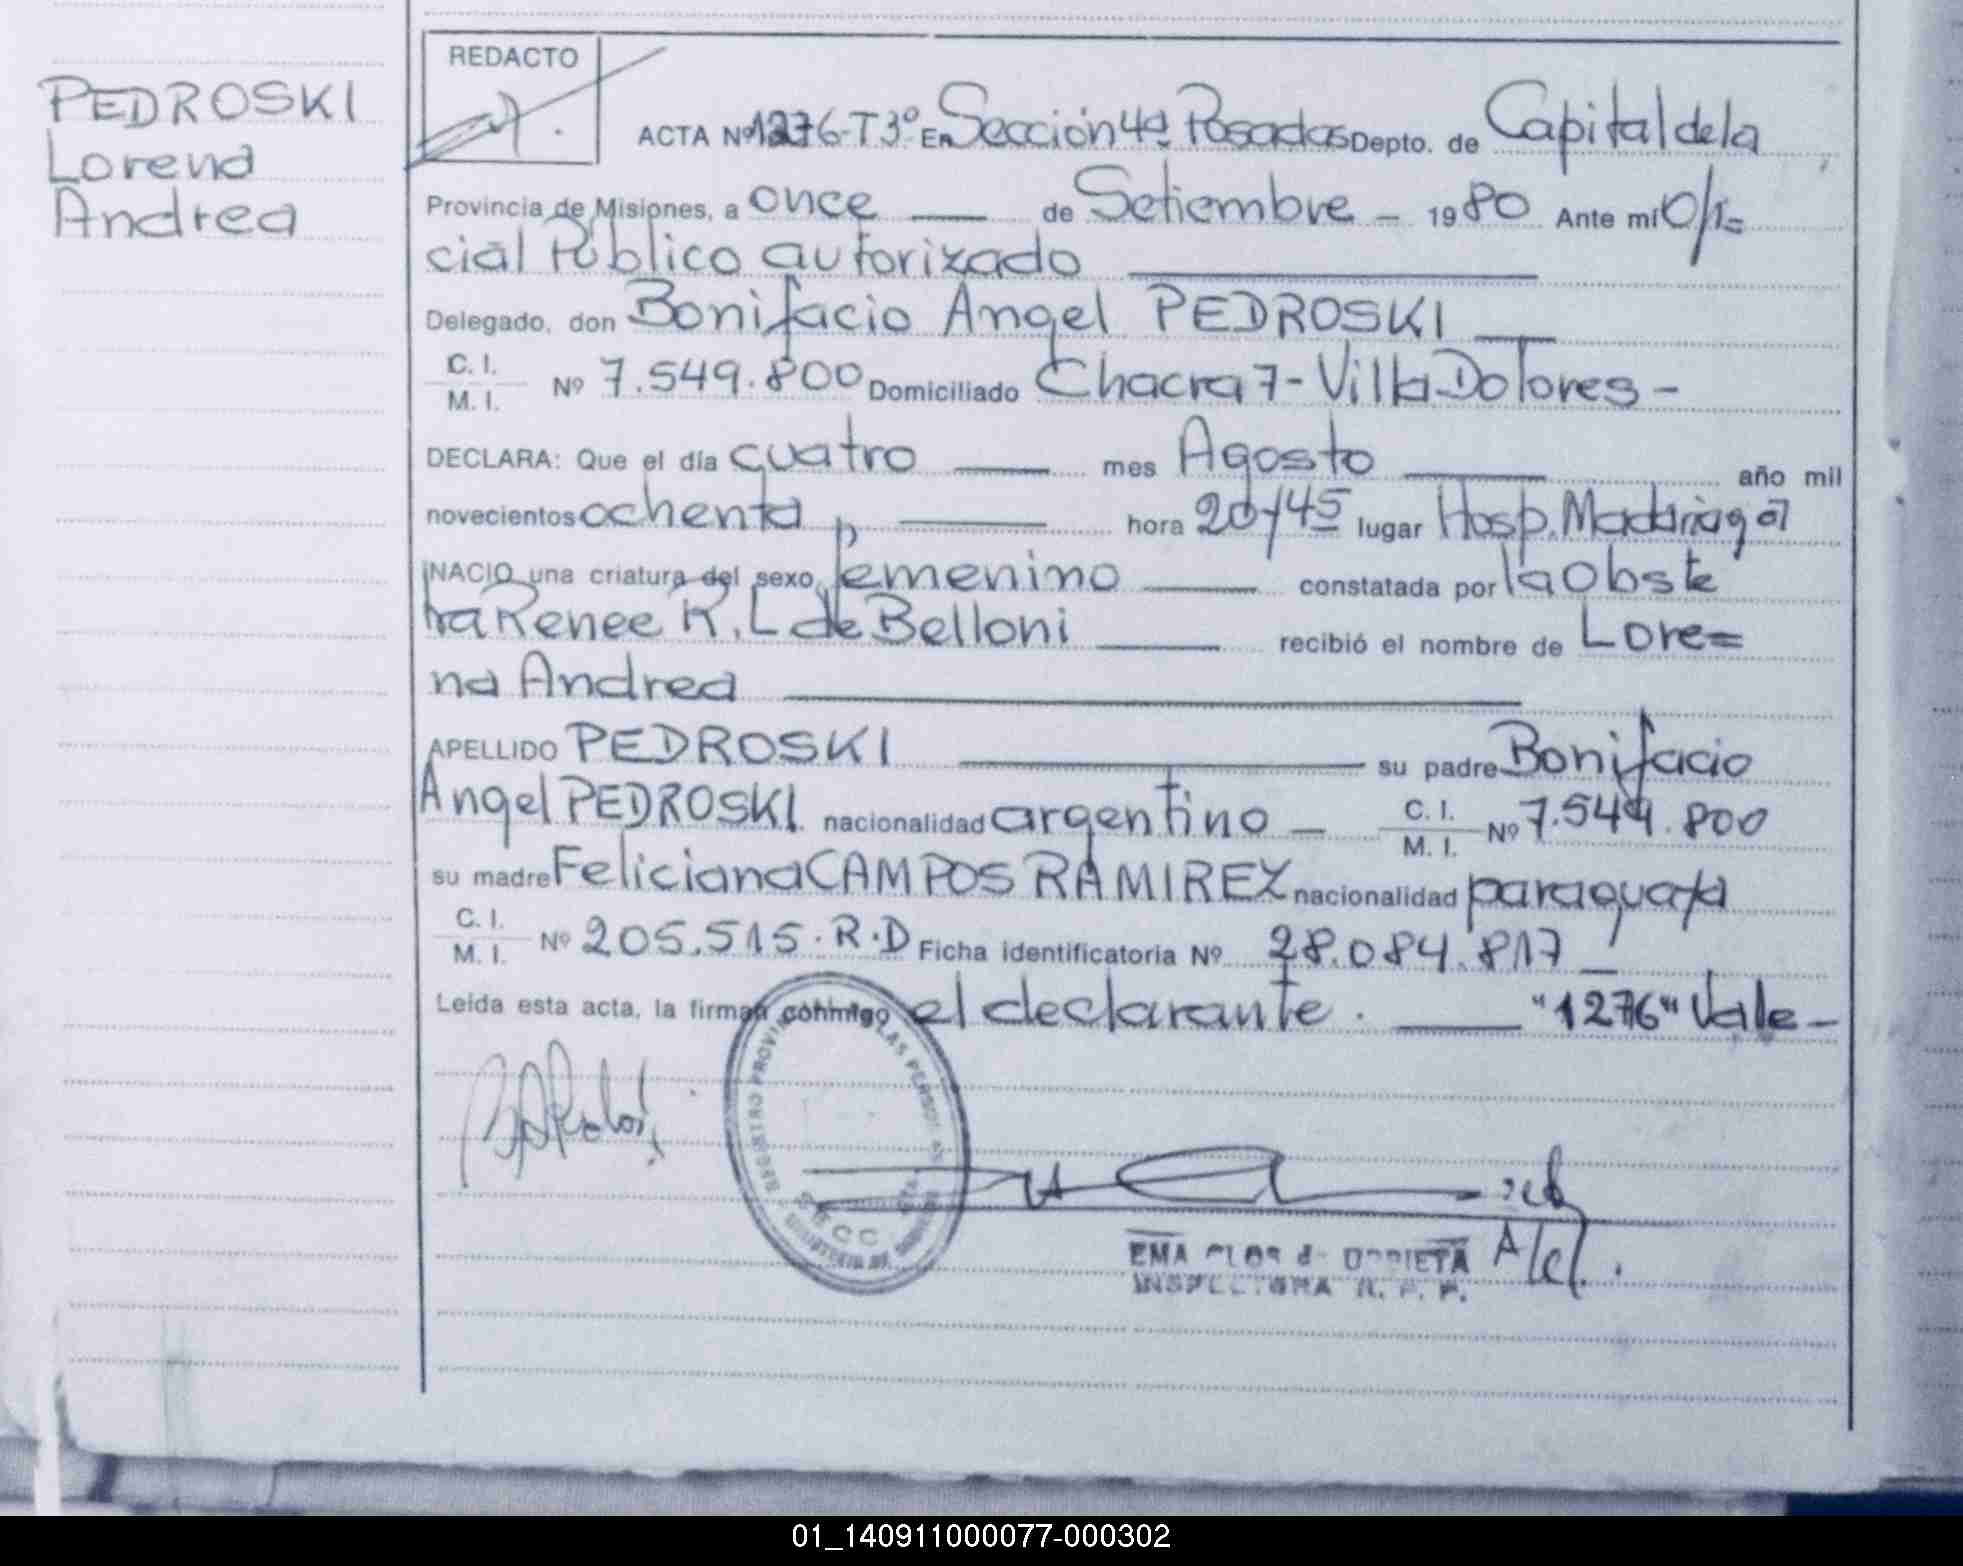 PEDROSKI
Lorena
Andrea
REDACTO
ACTA Nº 1276-T3º En Sección 4ª Posadas Depto. de Capital de la
Provincia de Misiones, a once de Setiembre - 1980 Ante mi Ofi=
cial Público autorizado
Delegado, don Bonifacio Angel PEDROSKI
C. I.
M. I. Nº 7.549.800 Domiciliado Chacra 7- Villa Dolores -
DECLARA: Que el día cuatro mes Agosto año mil
novecientos ochenta, hora 20/45 lugar Hosp. Madariaga
NACIO una criatura del sexo femenino constatada por la Obste
tra Renee R. L de Belloni recibió el nombre de Lore=
na Andrea
APELLIDO PEDROSKI su padre Bonifacio
Angel PEDROSKI. nacionalidad argentino - C. I. M. I. Nº 7.549.800
su madre Feliciana CAMPOS RAMIREZ nacionalidad paraguaya
C. I.
M. I. Nº 205.515. R.D Ficha identificatoria Nº 28.084.817
Leída esta acta, la firman conmigo el declarante. "1276" Vale-
REGISTRO PROVIN LAS PERSONAS
EMA de
INSPECTORA R. P. P.
01_140911000077-000302